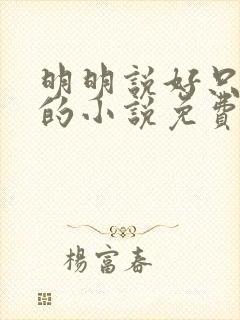 明明說好只
的小說免費
楊富春